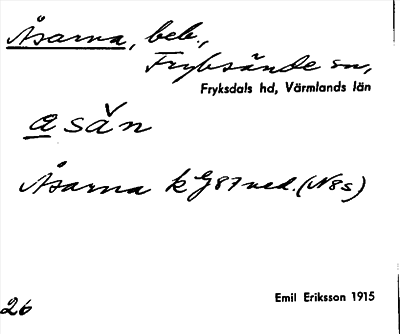 Åsarna, beb.,
Fryksände sn,
Fryksdals hd, Värmlands län
a sǎn
Åsarna k G87 ned. (N8s)
Emil Eriksson 1915
26